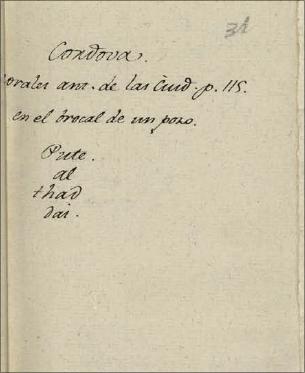 31
Cordova.
orales ant. de las Ciud. p. 115.
en el brocal de un pozo.
Pute.
al
thad
dai.